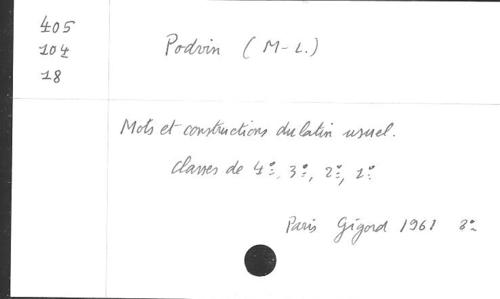 405
104
18
Podvin (M-L.)
Mots et constructions du latin usuel.
Classes de 4e, 3e, 2e, 1e
Paris Gigord 1961 8°